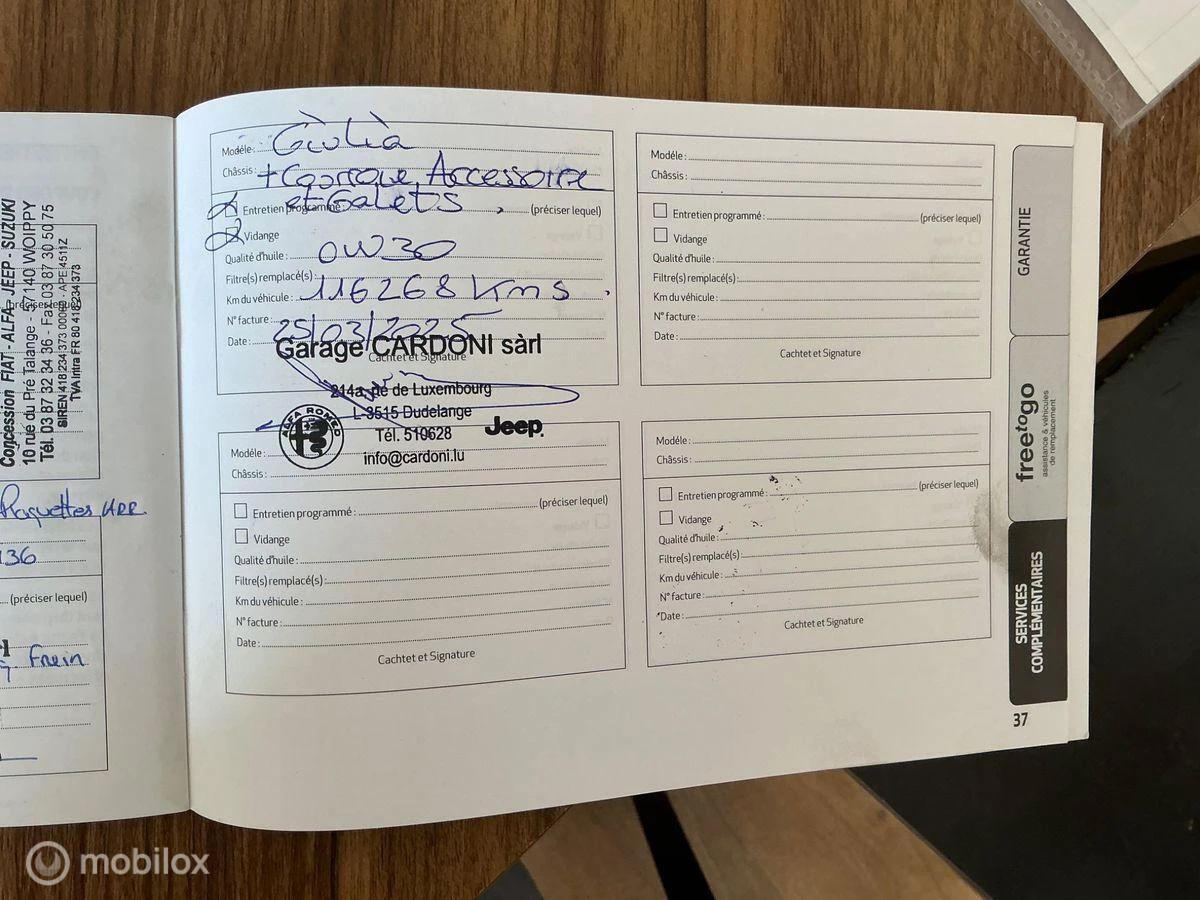 Concession FIAT - ALFA - JEEP - SUZUKI
10 rue du Pré Talange - 57140 WOIPPY
Tél. 03 87 32 34 36 - Fax 03 87 30 50 75
SIREN 418 234 373 - APE 4511Z
TVA Intra FR 80 418 234 373
Plaquettes ARR
136
(préciser lequel)
Frein
Modèle : Giulia
Châssis : + Courroie Accessoire
et Galets
Entretien programmé : (préciser lequel)
Vidange
Qualité d'huile : 0W30
Filtre(s) remplacé(s) :
Km du véhicule : 116268 Kms.
N° facture :
Date : 25/03/2025
Cachtet et Signature
Garage CARDONI sàrl
214a, de Luxembourg
L-3515 Dudelange
Tél. 519628
info@cardoni.lu
ALFA ROMEO
Jeep
Modèle :
Châssis :
Entretien programmé : (préciser lequel)
Vidange
Qualité d'huile :
Filtre(s) remplacé(s) :
Km du véhicule :
N° facture :
Date :
Cachtet et Signature
Modèle :
Châssis :
Entretien programmé : (préciser lequel)
Vidange
Qualité d'huile :
Filtre(s) remplacé(s) :
Km du véhicule :
N° facture :
Date :
Cachtet et Signature
Modèle :
Châssis :
Entretien programmé : (préciser lequel)
Vidange
Qualité d'huile :
Filtre(s) remplacé(s) :
Km du véhicule :
N° facture :
Date :
Cachtet et Signature
GARANTIE
freetogo
assistance & véhicules
de remplacement
SERVICES
COMPLÉMENTAIRES
37
mobilox